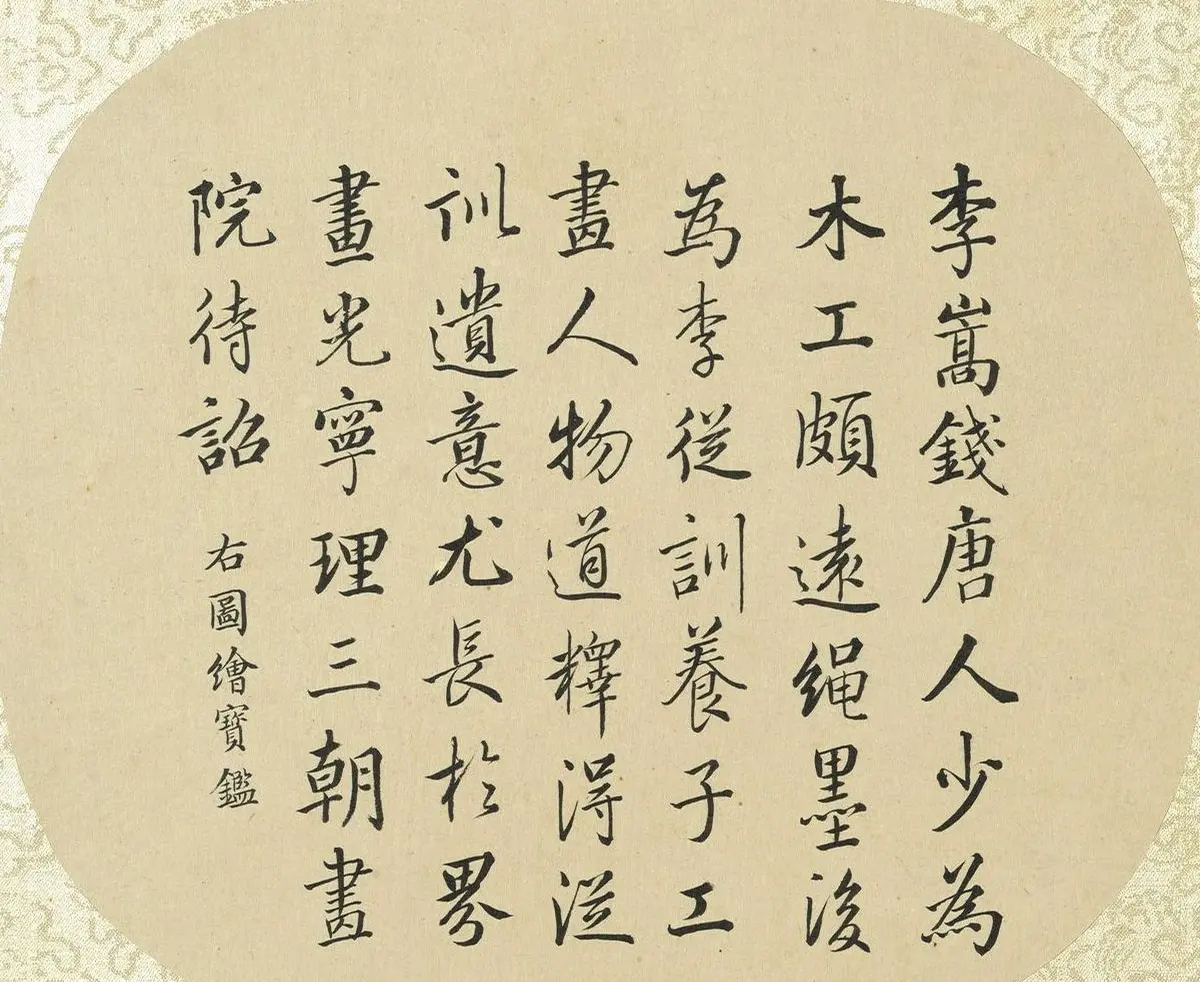 李嵩錢唐人少為
木工頗遠繩墨後
為李從訓養子工
畫人物道釋得從
訓遺意尤長於界
畫光寧理三朝畫
院待詔 右圖繪寶鑑